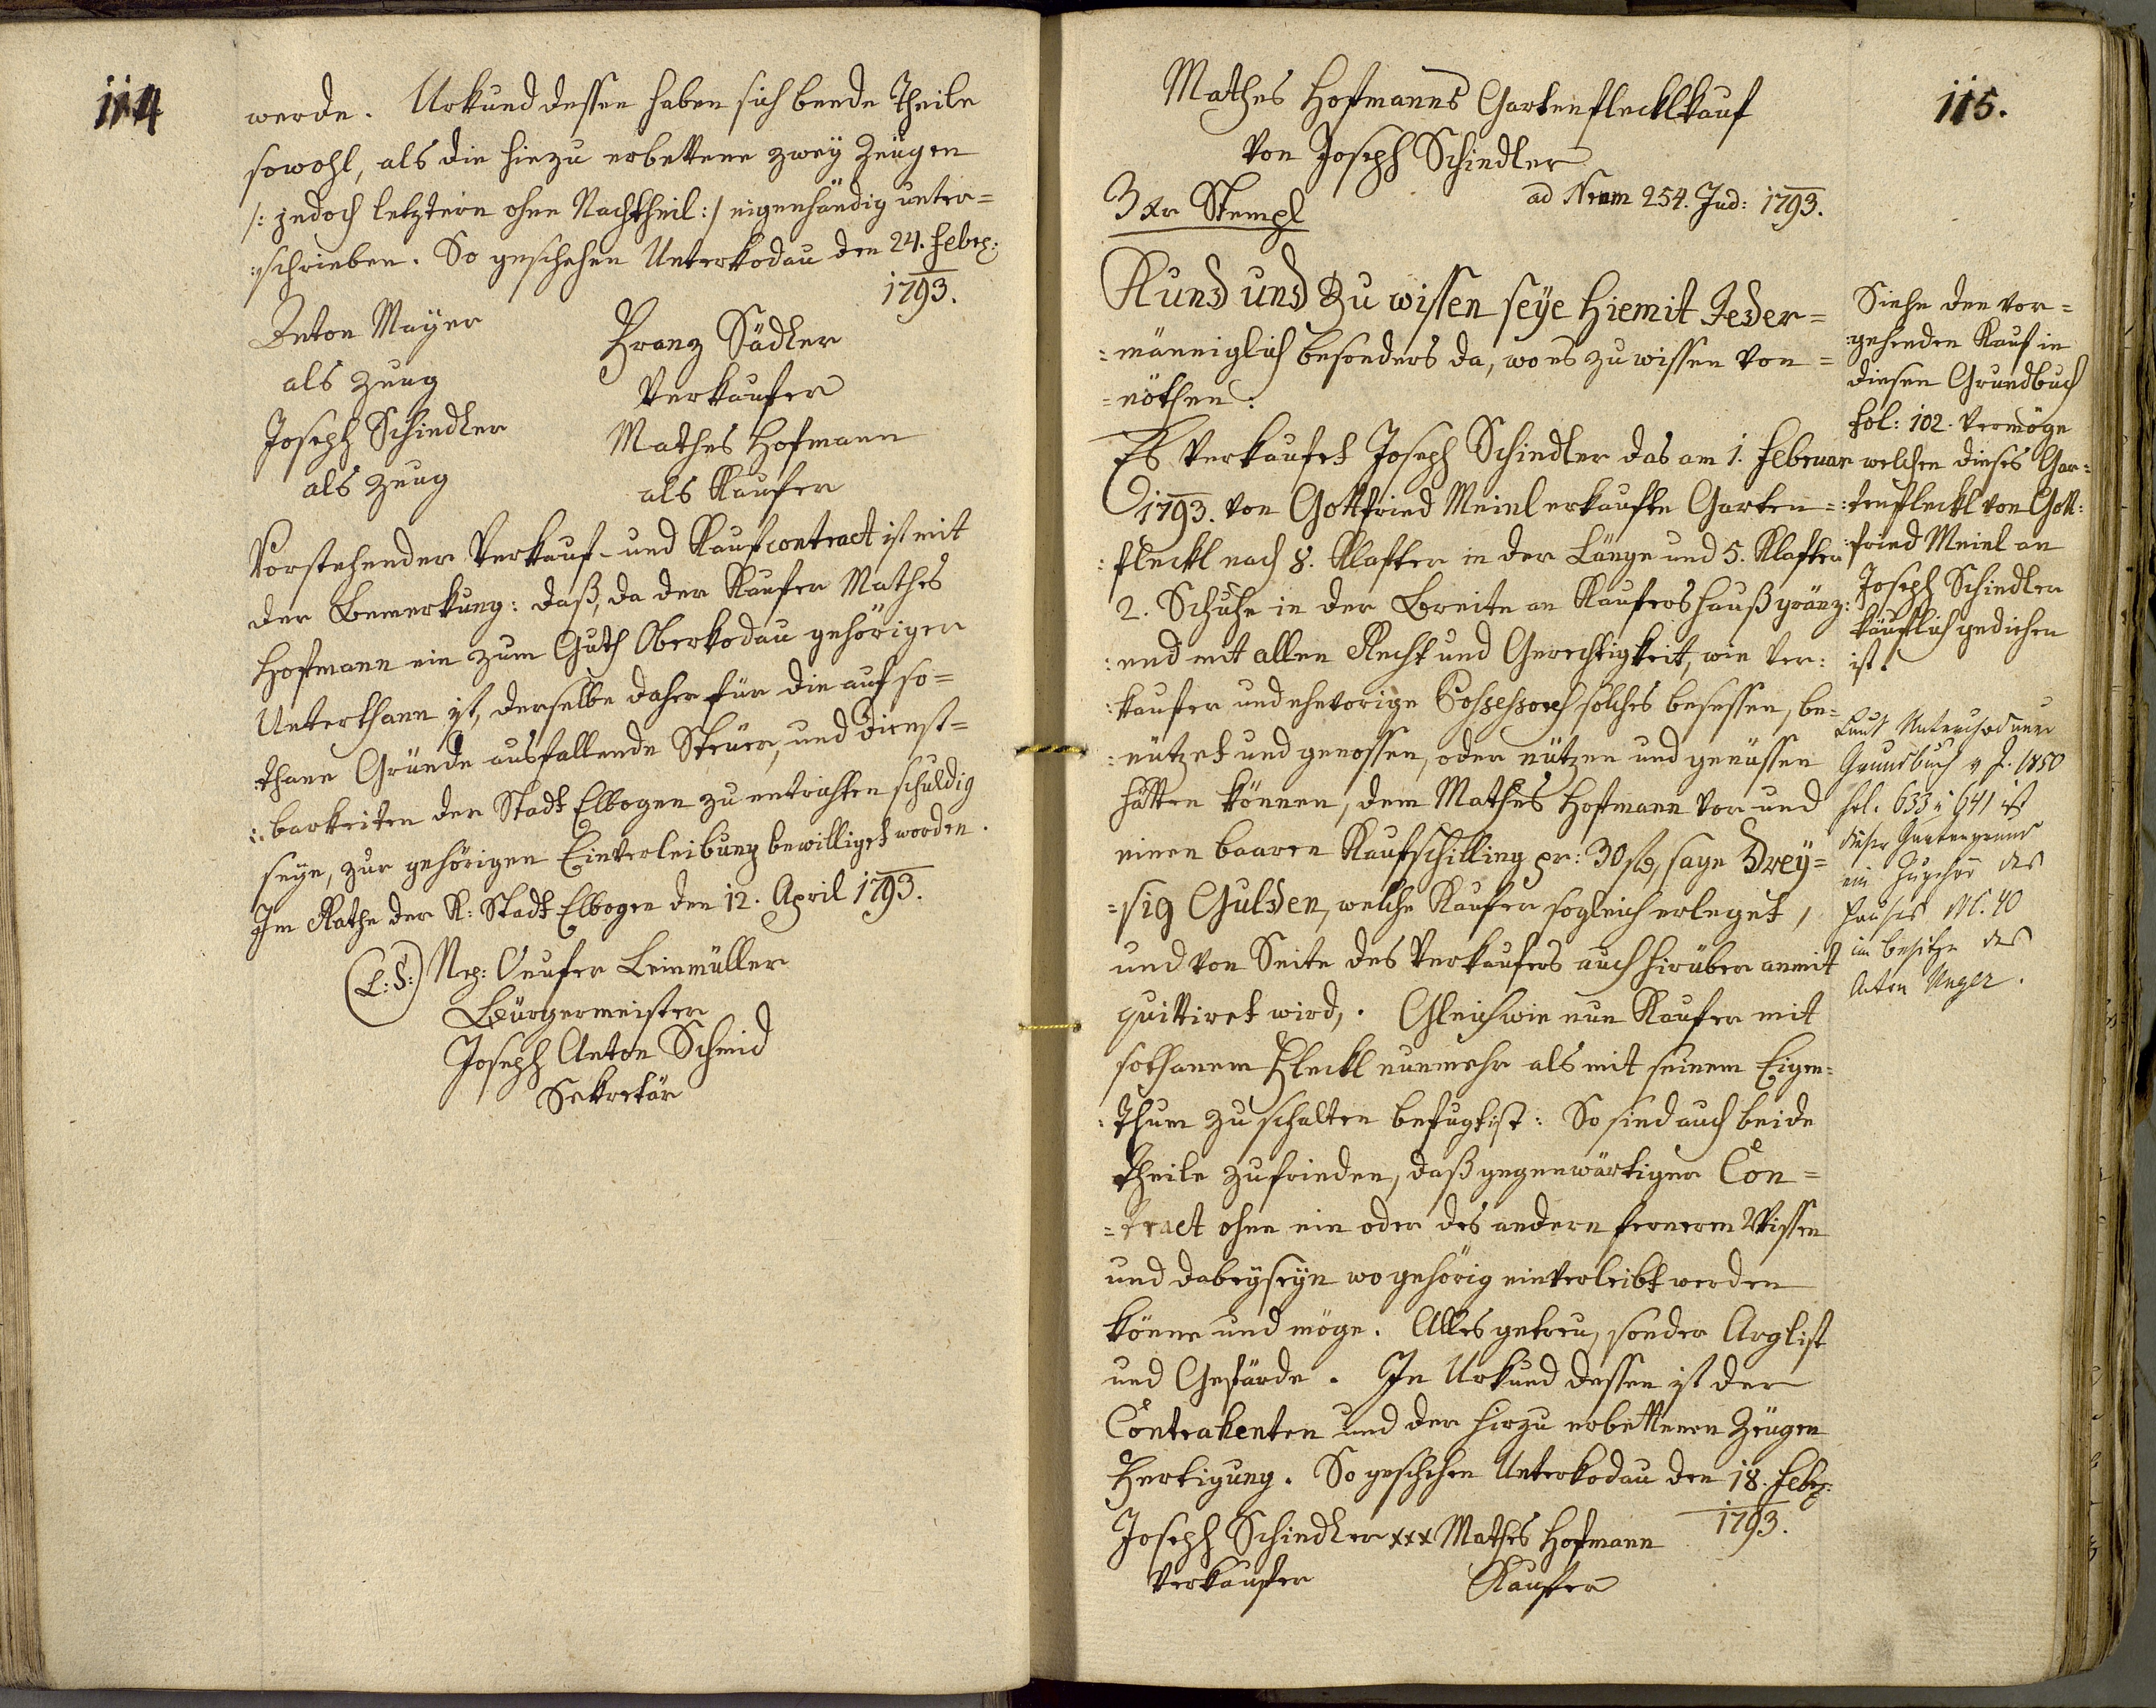 114
werde. Urkund dessen haben sich beede Theile
sowohl, als die hiezu erbettene zwey Zeügen
/: jedoch letztern ohne Nachtheil :/ eigenhändig unter=
:schrieben. So geschehen Unterkodau den 24. Febr:
1793.
Anton Mayer
als Zeug
Joseph Schindler
als Zeug
Franz Sädler
Verkaufer
Mathes Hofmann
als Kaufer
Vorstehender Verkauf- und Kaufcontract ist mit
der Bemerkung: daß, da der Kaufer Mathes
Hofmann ein zum Guth Oberkodau gehöriger
Unterthann ist, derselbe daher für die auf so=
:thane Gründe ausfallende Steüer, und dienst=
:barkeiten der Stadt Elbogen zu entrichten schuldig
seye, zur gehörigen Einverleibung bewilliget worden.
Im Rathe der K: Stadt Elbogen den 12. April 1793.
(L:S:) Nep: Leinmüller
Bürgermeister
Joseph Anton Schmid
Sekretär
115.
Mathes Hofmanns Gartenflecklkauf
von Joseph Schindler
3 xr Stempl
ad Nrum 254. Jud: 1793.
Kund und zu wissen seye hiemit Jeder=
=männiglich besonders da, wo es zu wissen von=
=nöthen:
Es verkaufet Joseph Schindler das am 1. Februar
1793. von Gottfried Meinl erkaufte Garten=
:fleckl nach 8. Klafter in der Länge und 5. Klafter
2. Schuhe in der Breite an Kaufers hauß gränz:
:end mit allen Recht und Gerechtigkeit, wie Ver:
:kaufer und ehevorige Possessores solches besessen, be=
:nützet und genossen, oder nützen und genüssen
hätten können, dem Mathes Hofmann vor und
einen baaren Kaufschilling pr: 30 fl, sage Drey=
=sig Gulden, welche Kaufer sogleich erleget,
und von Seite des Verkaufers auch hirüber anmit
quittiret wird,. Gleichwie nun Kaufer mit
sothanem Fleckl nunmehr als mit seinem Eigen=
:thum zu schalten befugt ist: So sind auch beide
Theile zufrieden, daß gegenwärtiger Con=
=tract ohne ein oder des andern fernerm Wissen
und dabeyseyn wo gehörig einverleibt werden
könne und möge. Alles getreu, sonder Arglist
und Gefärde. In Urkund dessen ist der
Contrahenten und der hiezu erbettenen Zeügen
Fertigung. So geschehen Unterkodau den 18. Febr:
1793.
Joseph Schindler xxx Mathes Hofmann
Verkaufer Kaufer
Siehe den vor=
:gehenden Kauf in
diesen Grundbuch
fol: 102. vermöge
welchen dieses Gar=
:tenfleckl von Gott:
:fried Meinl an
Joseph Schindler
käuflich gediehen
ist.
Laut Unterchodauer
Grundbuch v J. 1850
fol. 633 u 641 ist
dieser Gartengrund
ein Zugehör des
Hauses N. 40
im Besitze des
Anton Unger.